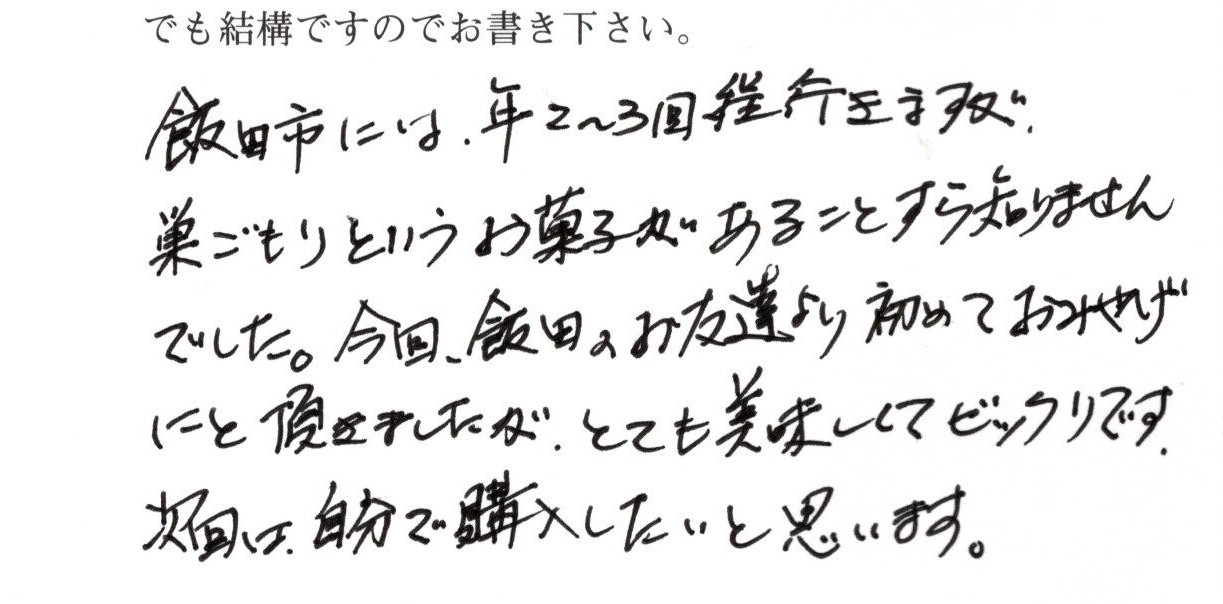 でも結構ですのでお書き下さい。
飯田市には、年2〜3回程行きますが、
巣ごもりというお菓子があることすら知りません
でした。今回、飯田のお友達より初めておみやげ
にと頂きましたが、とても美味しくてビックリです。
次回は、自分で購入したいと思います。